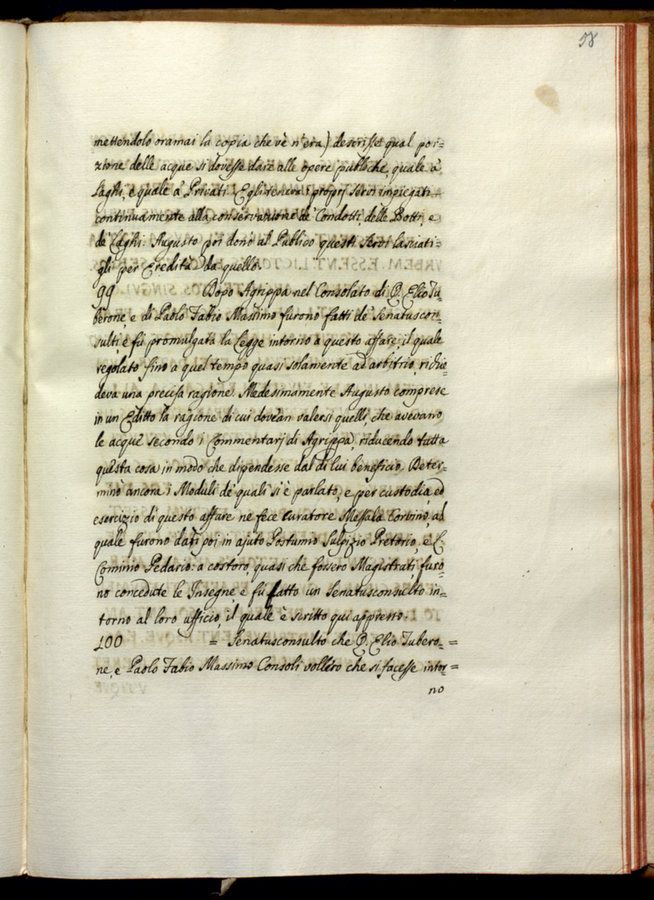 58
mettendolo oramai la copia che ve n'era) descrisse qual por=
zione delle acque si dovesse dare alle opere publiche, quale a'
Laghi, e quale a' Privati. Egli teneva i proprj Servi impiegati
continuamente alla conservazione de' Condotti, delle Botti, e
de' Laghi. Augusto poi donò al Publico questi Servi lasciati=
gli per Eredità da quello.
99 Dopo Agrippa nel Consolato di Q. Elio Tu
berone, e di Paolo Fabio Massimo furono fatti de' Senatuscon=
sulti, e fù promulgata la Legge intorno a questo affare, il quale
regolato fino a quel tempo quasi solamente ad arbitrio, richie
deva una precisa ragione. Medesimamente Augusto comprese
in un Editto la ragione di cui dovean valersi quelli, che avevano
le acque secondo i Commentarj di Agrippa, riducendo tutta
questa cosa in modo che dipendesse dal di lui beneficio. Deter=
minò ancora i Moduli de' quali si è parlato, e per custodia, ed
esercizio di questo affare ne fece Curatore Messala Corvino, al
quale furono dati poi in ajuto Postumio Sulpizio Pretorio, e C.
Cominio Pedario: a costoro, quasi che fossero Magistrati, furo=
no concedute le Insegne e fù fatto un Senatusconsulto in=
torno al loro ufficio, il quale è scritto qui appresso.
100 = Senatusconsulto che Q. Elio Tubero= =
ne, e Paolo Fabio Massimo Consoli vollero che si facesse intor= =
no